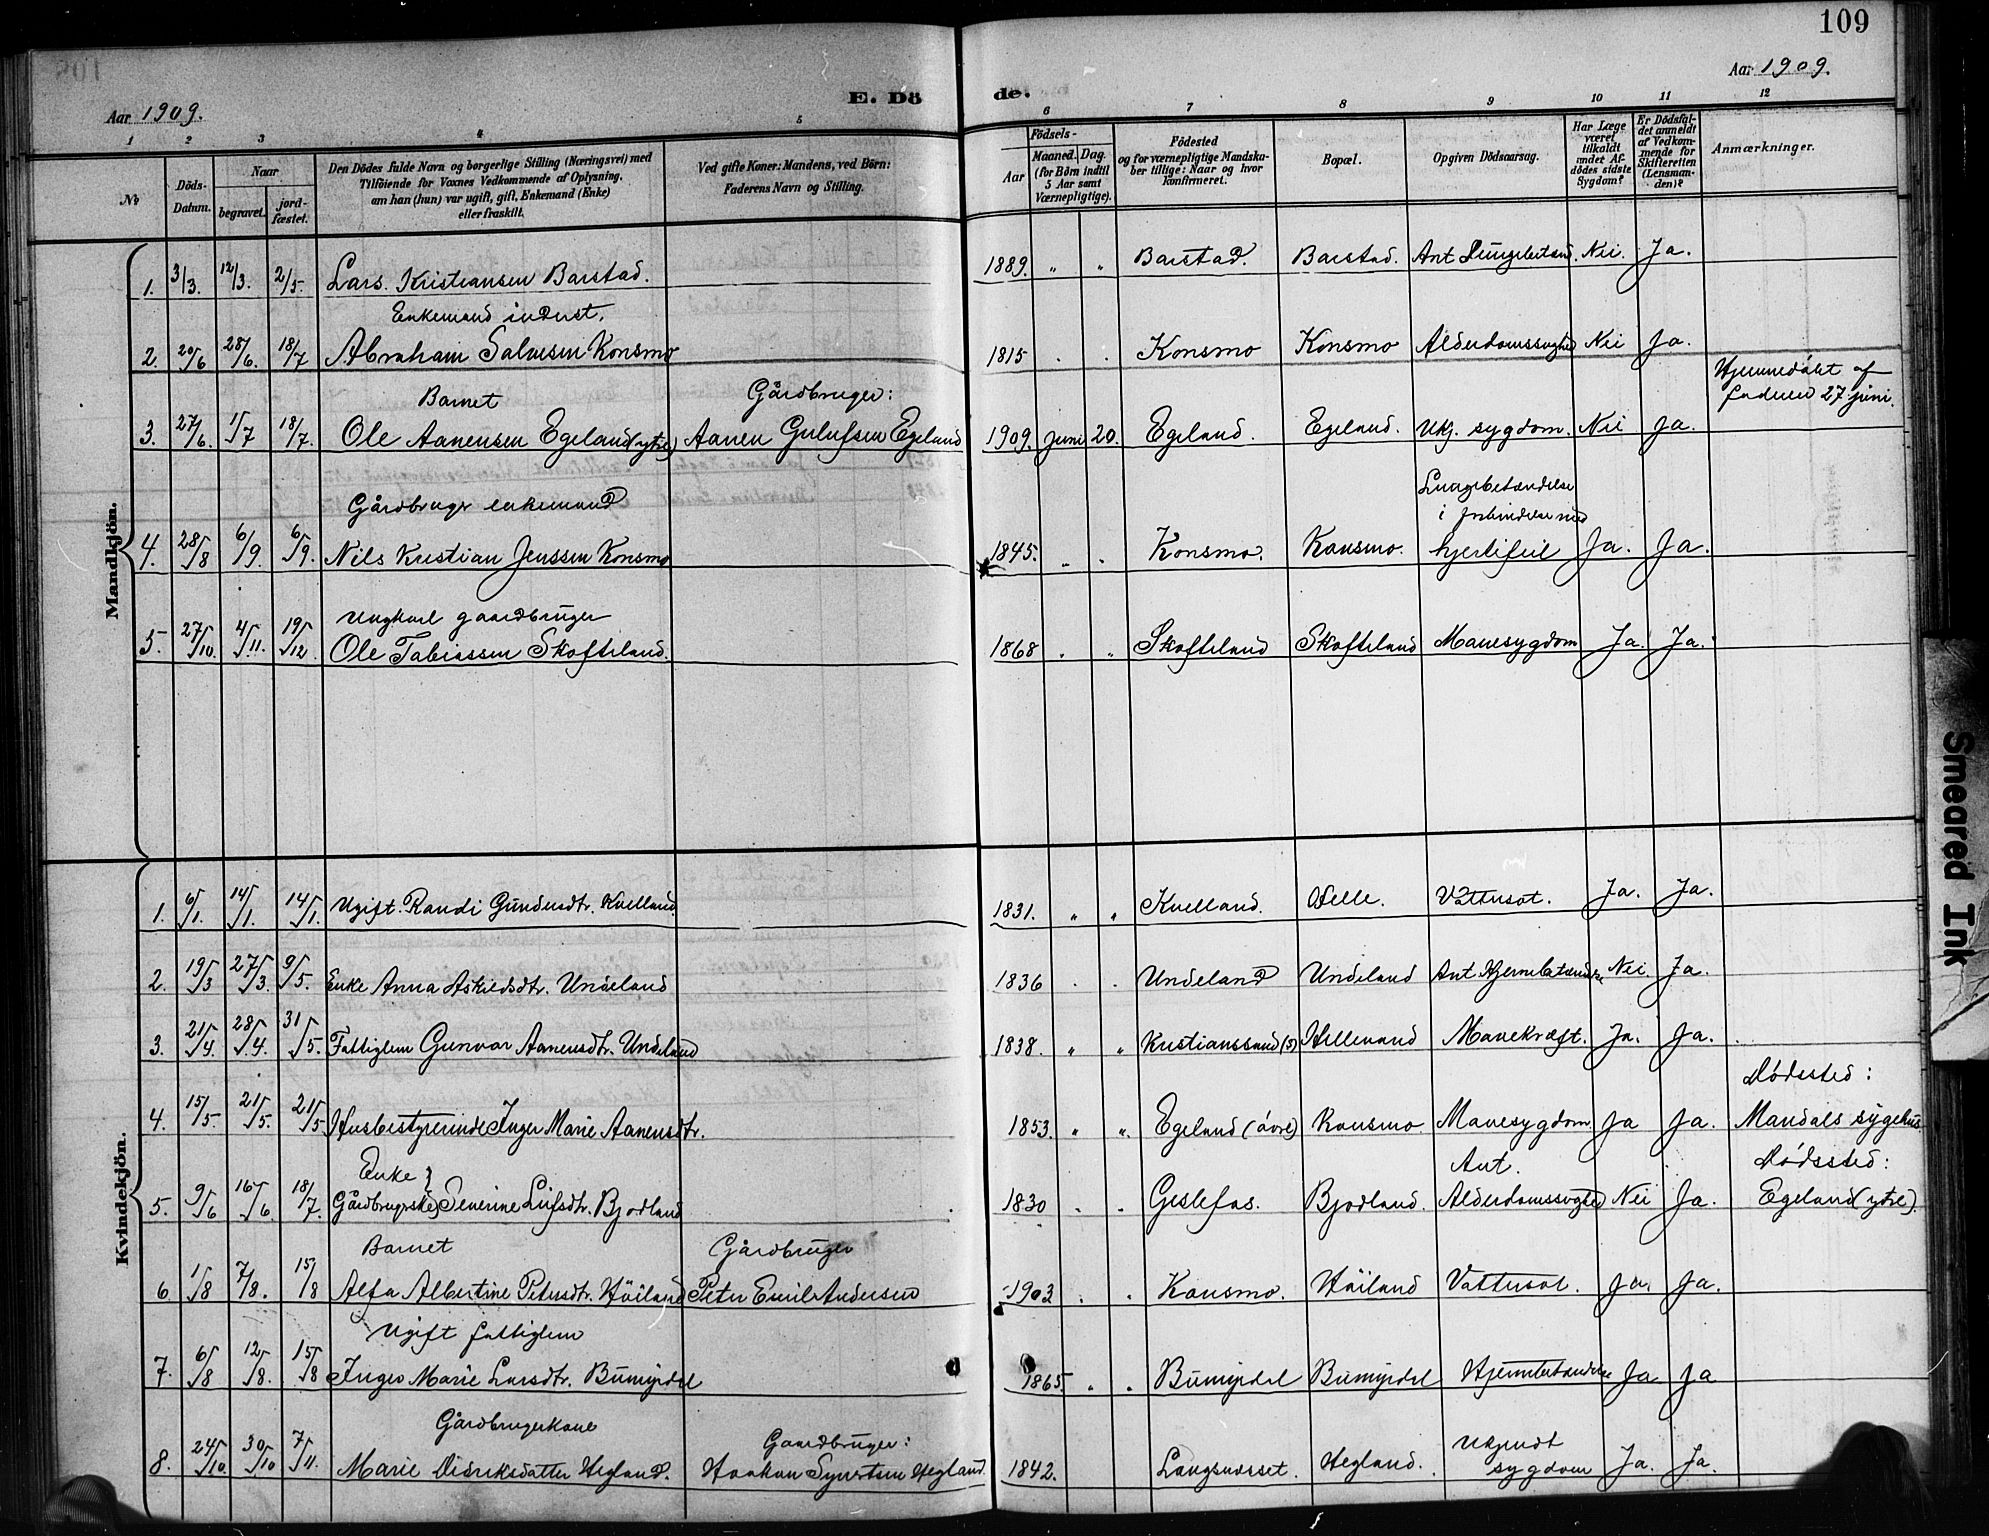 109
Aar 1909.
E. Dö
de.
Aar 1909.
1 2 3 4 5 6 7 8 9 10 11 12
No
Döds-Datum.
Naar
begravet.
jord-fæstet.
Den Dödes fulde Navn og borgerlige Stilling (Næringsvei) med
Tilföiende for Voxnes Vedkommende af Oplysning,
om han (hun) var ugift, gift, Enkemand (Enke)
eller fraskilt.
Ved gifte Koner: Mandens, ved Börn:
Faderens Navn og Stilling.
Födsels-
Aar
Maaned. Dag.
(for Börn indtil
5 Aar samt
Værnepligtige).
Födested
og for værnepligtige Mandska-
ber tillige: Naar og hvor
konfirmeret.
Bopæl.
Opgiven Dödsaarsag.
Har Læge
været
tilkaldt
under Af-
dödes sidste
Sygdom?
Er Dödsfal-
det anmeldt
af Vedkom-
mende for
Skifteretten
(Lensman-
den)?
Anmærkninger.
Mandkjön.
1. 3/3. 12/3. 2/5. Lars Kristiansen Barstad. 1889. " " Barstad. Barstad. Ant Nei. Ja.
Enkemand inderst.
2. 20/6 28/6. 18/7 Abraham Salvesen Konsmo 1815 . . Konsmo Konsmo Alderdomssvaghed Nei Ja.
Barnet Gårdbruger: Hjemmedöbt af
faderen 27 juni.
3. 27/6. 1/7 18/7. Ole Aanensen Egeland (ytre) Aanen Gulufsen Egeland 1909. juni 20. Egeland. Egeland. Ukj. sygdom. Nei Ja.
Gårdbruger enkemand Lungebetændelse
i forbindelse med
4. 28/8 6/9. 6/9. Nils Kristian Jenssen Konsmo 1845. " . Konsmo. Konsmo. hjertefeil Ja. Ja.
Ungkarl gaardbruger
5. 27/10. 4/11. 19/12 Ole Tobiassen Skofteland. 1868 " " Skofteland Skofteland Mavesygdom Ja. Ja.
Kvindekjön.
1. 6/1. 14/1. 14/1. Ugift. Randi Gundersdtr. Kvelland. 1831. " " Kvelland. Helle. Vattersot. Ja. Ja.
2. 19/3 27/3. 9/5. Enke Anna Askiedsdtr. Undeland 1836 . . Undeland Undeland Ant Nei. Ja.
3. 21/4. 28/4. 31/5. Fattiglem Gunvor Aanensdtr. Undeland 1838. " " Kristianssand (s) Hellevand Mavekræft. Ja. Ja.
Dödssted:
4. 15/5. 21/5. 21/5 Husbestyrerinde Inger Marie Aanensdtr. 1853. " ". Egeland (övre) Konsmo. Mavesygdom Ja Ja. Mandals sygehus.
Enke } Ant. Dödssted:
5. 9/6 16/6. 18/7. Gårdbrugerske} Severine Leifsdtr. Bjodland 1830 . . Geslefos. Bjodland. Alderdomssvaghed Nei Ja. Egeland (ytre).
Barnet Gårdbruger
6 1/8 7/8. 15/8 Alfa Albertine Petersdtr. Höiland Peter Emil Andersen 1903 . . Konsmo. Höiland Vattersot. Ja. Ja.
Ugift fattiglem
7. 6/8 12/8. 15/8 Inger Marie Larsdtr. Bumyrdal 1865. " . Bumyrdal Bumyrdal Ja Ja
Gårdbrugerkone Gaardbruger: Ukjendt
8. 24/10. 30/10 7/11. Marie Didriksdatter Hegland. Haakon Syvertsen Hegland. 1842. Hegland. sygdom Ja. Ja.
Smeared Ink